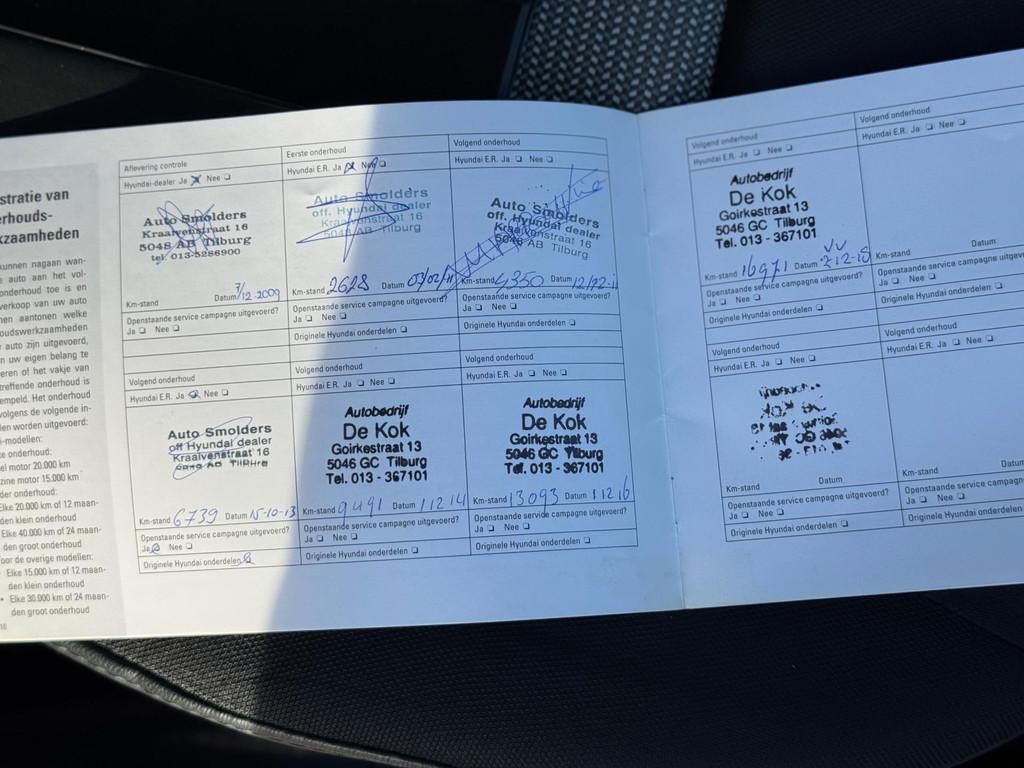 stratie van
erhouds-
kzaamheden
kunnen nagaan wan-
e auto aan het vol-
onderhoud toe is en
verkoop van uw auto
nen aantonen welke
oudswerkzaamheden
auto zijn uitgevoerd,
n uw eigen belang te
eren of het vakje van
treffende onderhoud is
empeld. Het onderhoud
volgens de volgende in-
len worden uitgevoerd:
i-modellen:
te onderhoud:
el motor 20.000 km
zine motor 15.000 km
der onderhoud:
Elke 20.000 km of 12 maan-
den klein onderhoud
Elke 40.000 km of 24 maan-
den groot onderhoud
oor de overige modellen:
Elke 15.000 km of 12 maan-
den klein onderhoud
• Elke 30.000 km of 24 maan-
den groot onderhoud
Aflevering controle
Hyundai-dealer Ja Nee
Auto Smolders
Kraaivenstraat 16
5048 AB Tilburg
tel. 013-5286900
Km-stand Datum 7/12-2009
Openstaande service campagne uitgevoerd?
Ja Nee
Eerste onderhoud
Hyundai E.R. Ja Nee
Auto Smolders
off. Hyundai dealer
Kraaivenstraat 16
5048 AB Tilburg
Km-stand 2628 Datum 03/02/11
Openstaande service campagne uitgevoerd?
Ja Nee
Originele Hyundai onderdelen
Volgend onderhoud
Hyundai E.R. Ja Nee
Auto Smolders
off. Hyundai dealer
Kraaivenstraat 16
5048 AB Tilburg
Km-stand 4350 Datum
Openstaande service campagne uitgevoerd?
Ja Nee
Originele Hyundai onderdelen
Volgend onderhoud
Hyundai E.R. Ja Nee
Auto Smolders
off Hyundai dealer
Kraaivenstraat 16
Km-stand 6739 Datum 15-10-13
Openstaande service campagne uitgevoerd?
Ja Nee
Originele Hyundai onderdelen
Volgend onderhoud
Hyundai E.R. Ja Nee
Autobedrijf
De Kok
Goirkestraat 13
5046 GC Tilburg
Tel. 013 - 367101
Km-stand 9491 Datum 11214
Openstaande service campagne uitgevoerd?
Ja Nee
Originele Hyundai onderdelen
Volgend onderhoud
Hyundai E.R. Ja Nee
Autobedrijf
De Kok
Goirkestraat 13
5046 GC Tilburg
Tel. 013 - 367101
Km-stand 13093 Datum 11216
Openstaande service campagne uitgevoerd?
Ja Nee
Originele Hyundai onderdelen
Volgend onderhoud
Hyundai E.R. Ja Nee
Autobedrijf
De Kok
Goirkestraat 13
5046 GC Tilburg
Tel. 013 - 367101
Km-stand 16971 Datum
Openstaande service campagne uitgevoerd?
Ja Nee
Originele Hyundai onderdelen
Volgend onderhoud
Hyundai E.R. Ja Nee
Km-stand Datum
Openstaande service campagne
Ja Nee
Originele Hyundai onderdelen
Volgend onderhoud
Hyundai E.R. Ja Nee
Km-stand Datum
Openstaande service campagne uitgevoerd?
Ja Nee
Originele Hyundai onderdelen
Volgend onderhoud
Hyundai E.R. Ja Nee
Km-stand Datum
Openstaande service campagne
Ja Nee
Originele Hyundai onderdelen